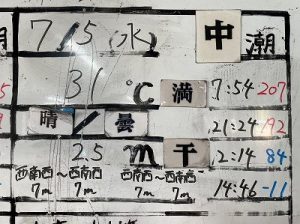 7/5(水) 中潮
31℃ 満 7:54 207
晴/曇 21:24 192
2.5m 干 2:14 84
西南西~西南西 西南西~西南西 14:46 -11
7m 7m 7m 7m